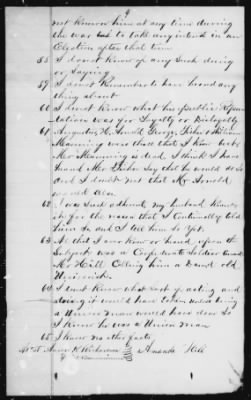 9
not known him at any time during
the war to take any interest in an
Election after that time
58 I do not know of any Such doing
or Saying
59 I do not Remember to have heard any
thing about
60 I do not know what his public Repu-
tation was for Loyalty or Disloyalty
61 Augustus H. Arnold George Fisher &
Manning were those that I knew best
Mr Manning is dead. I think I have
heard Mr Fisher Say that he would do so
and I doubt not that Mr Arnold
would also
62 I was Such adherent my husband knew
it for the reason that I Continually told
him So and I tell him So Yet.
63 All that I ever knew or heard upon the
Subject was a Confederate Soldier
Mr Hill Calling him a Damd old
Unionist
64 I dont know what Sort of acting and
doing it would have been unless being
a Union man would have done So
I know he was a Union man
65 I know no other facts
Amanda Hill